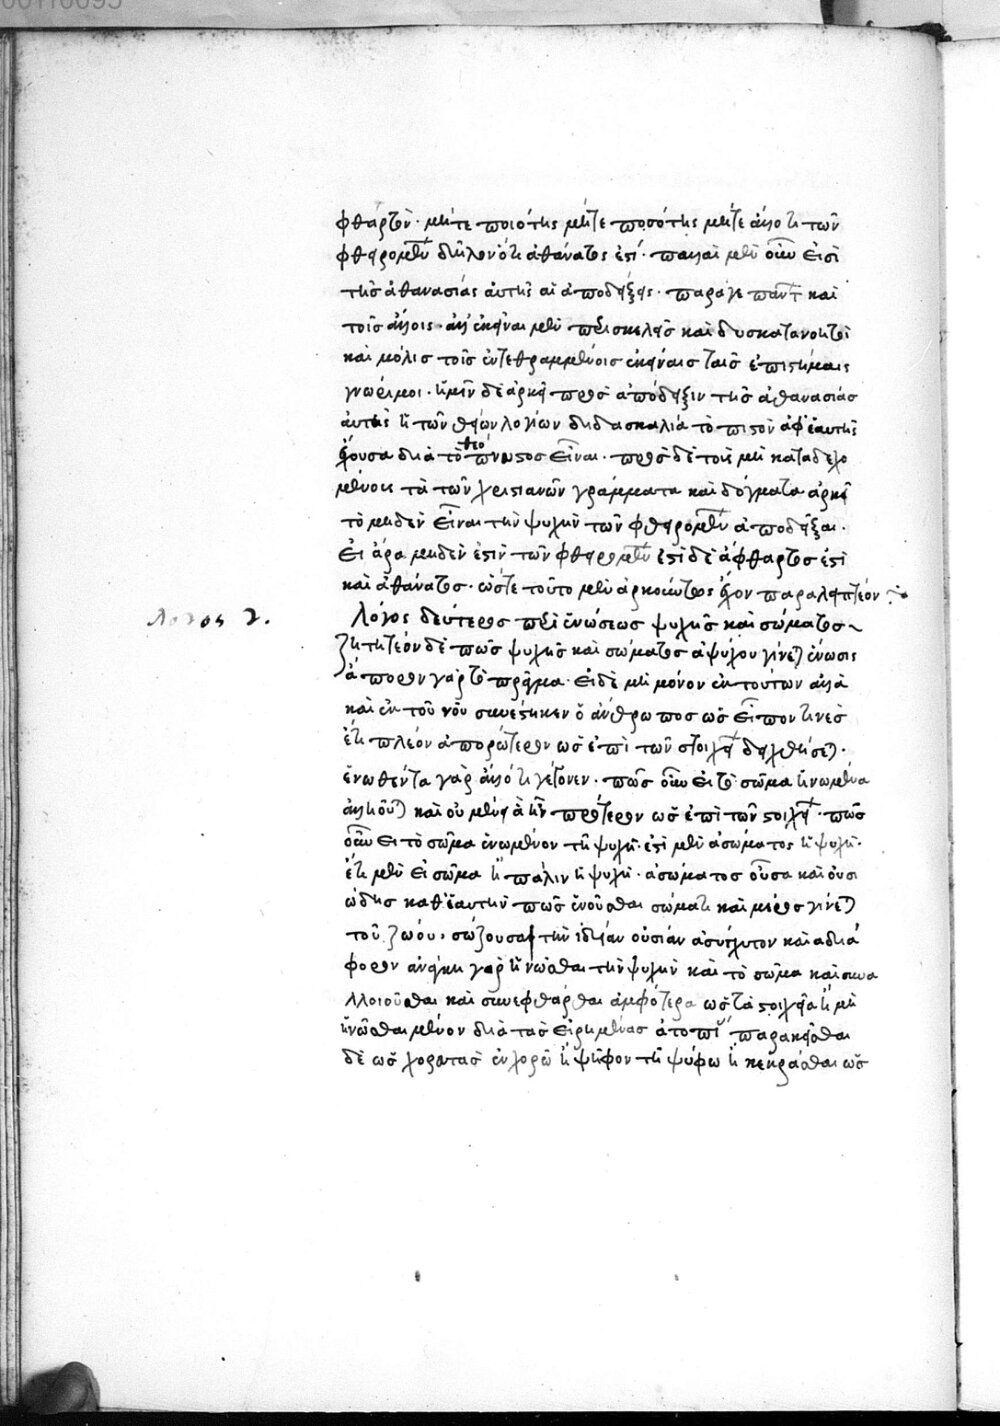 φθαρτὸν· μήτε ποιότης μήτε ποσότης μήτε ἄλλο τι τῶν
φθειρομένων δῆλον ὅτι ἀθάνατος ἐστί· πολλαὶ μὲν οὖν εἰσὶ
τῆς ἀθανασίας αὐτῆς αἱ ἀποδείξεις· παρά γε πλάτωνι καὶ
τοῖς ἄλλοις· ἀλλ' ἐκεῖναι μὲν περισκελεῖς καὶ δυσκατανόητοι
καὶ μόλις τοῖς ἐντεθραμμένοις ἐκείναις ταῖς ἐπιστήμαις
γνώριμοι· ἡμῖν δὲ ἀρκεῖ πρὸς ἀπόδειξιν τῆς ἀθανασίας
αὐτῆς ἡ τῶν θείων λογίων διδασκαλία τὸ πιστὸν ἀφ' ἑαυτῆς
ἔχουσα διὰ τὸ θεόπνευστος εἶναι· πρὸς δὲ τοὺς μὴ καταδεχο
μένους τὰ τῶν χριστιανῶν γράμματα καὶ δόγματα ἀρκεῖ
τὸ μηδὲν εἶναι τὴν ψυχὴν τῶν φθειρομένων ἀποδεῖξαι·
εἰ ἄρα μηδέν ἐστιν τῶν φθειρομένων ἔστι δὲ ἄφθαρτος ἐστὶ
καὶ ἀθάνατος· ὥστε τοῦτο μὲν ἀρκούντως ἔχον παραλειπτέον
λόγος δεύτερος περὶ ἑνώσεως ψυχῆς καὶ σώματος
λόγος 2.
ζητητέον δὲ πῶς ψυχῆς καὶ σώματος ἀψύχου γίνεται ἕνωσις
ἄπορον γὰρ τὸ πρᾶγμα· εἰ δὲ μὴ μόνον ἐκ τούτων ἀλλὰ
καὶ ἐκ τοῦ νοῦ συνέστηκεν ὁ ἄνθρωπος ὥς εἶπον τινὲς
ἔτι πλέον ἀπορώτερον ὡς ἐπὶ τῶν στοιχείων δειχθήσεται·
ἑνωθέντα γὰρ ἄλλό τι γέγονεν· πῶς οὖν εἰ τὸ σῶμα ἡνωμένα
ἀλλοιοῦται καὶ οὐ μένει ἃ ἦν πρότερον ὡς ἐπὶ τῶν στοιχείων· πῶς
οὖν εἰ τὸ σῶμα ἑνωμένον τῇ ψυχῇ· ἔστι μὲν ἀσώματος ἡ ψυχὴ·
ἔτι μένει σῶμα ἢ πάλιν ἡ ψυχὴ· ἀσώματος οὖσα καὶ οὐσι
ώδης καθ' ἑαυτὴν πῶς ἑνοῦσθαι σώματι καὶ μέρος γίνεται
τοῦ ζώου, σώζουσα τὴν ἰδίαν οὐσίαν ἀσύγχυτον καὶ ἀδιά
φορον ἀνάγκη γὰρ ἢ ἡνῶσθαι τὴν ψυχὴν καὶ τὸ σῶμα καὶ συνα
λλοιοῦσθαι καὶ συνεφθάρθαι ἀμφότερα ὡς τὰ στοιχεῖα ἢ μὴ
ἡνῶσθαι μένον διὰ τὰς εἰρημένας ἀτοπίας παρακεῖσθαι
δὲ ὡς χορευτὰς ἐν χορῶ ἢ ψῆφον τῇ ψήφω ἢ κεκρᾶσθαι ὡς